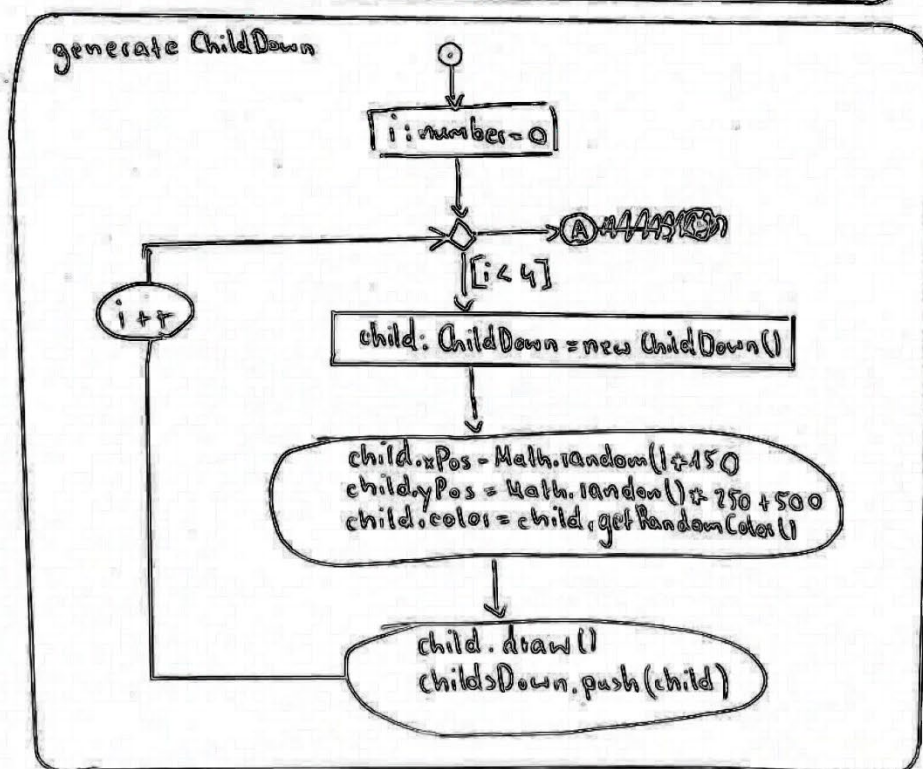 generate ChildDown
i : number = 0
A
[i < 4]
i++
child: ChildDown = new ChildDown()
child.xPos = Math.random() * 150
child.yPos = Math.random() * 250 + 500
child.color = child.getRandomColor()
child.draw()
childsDown.push(child)